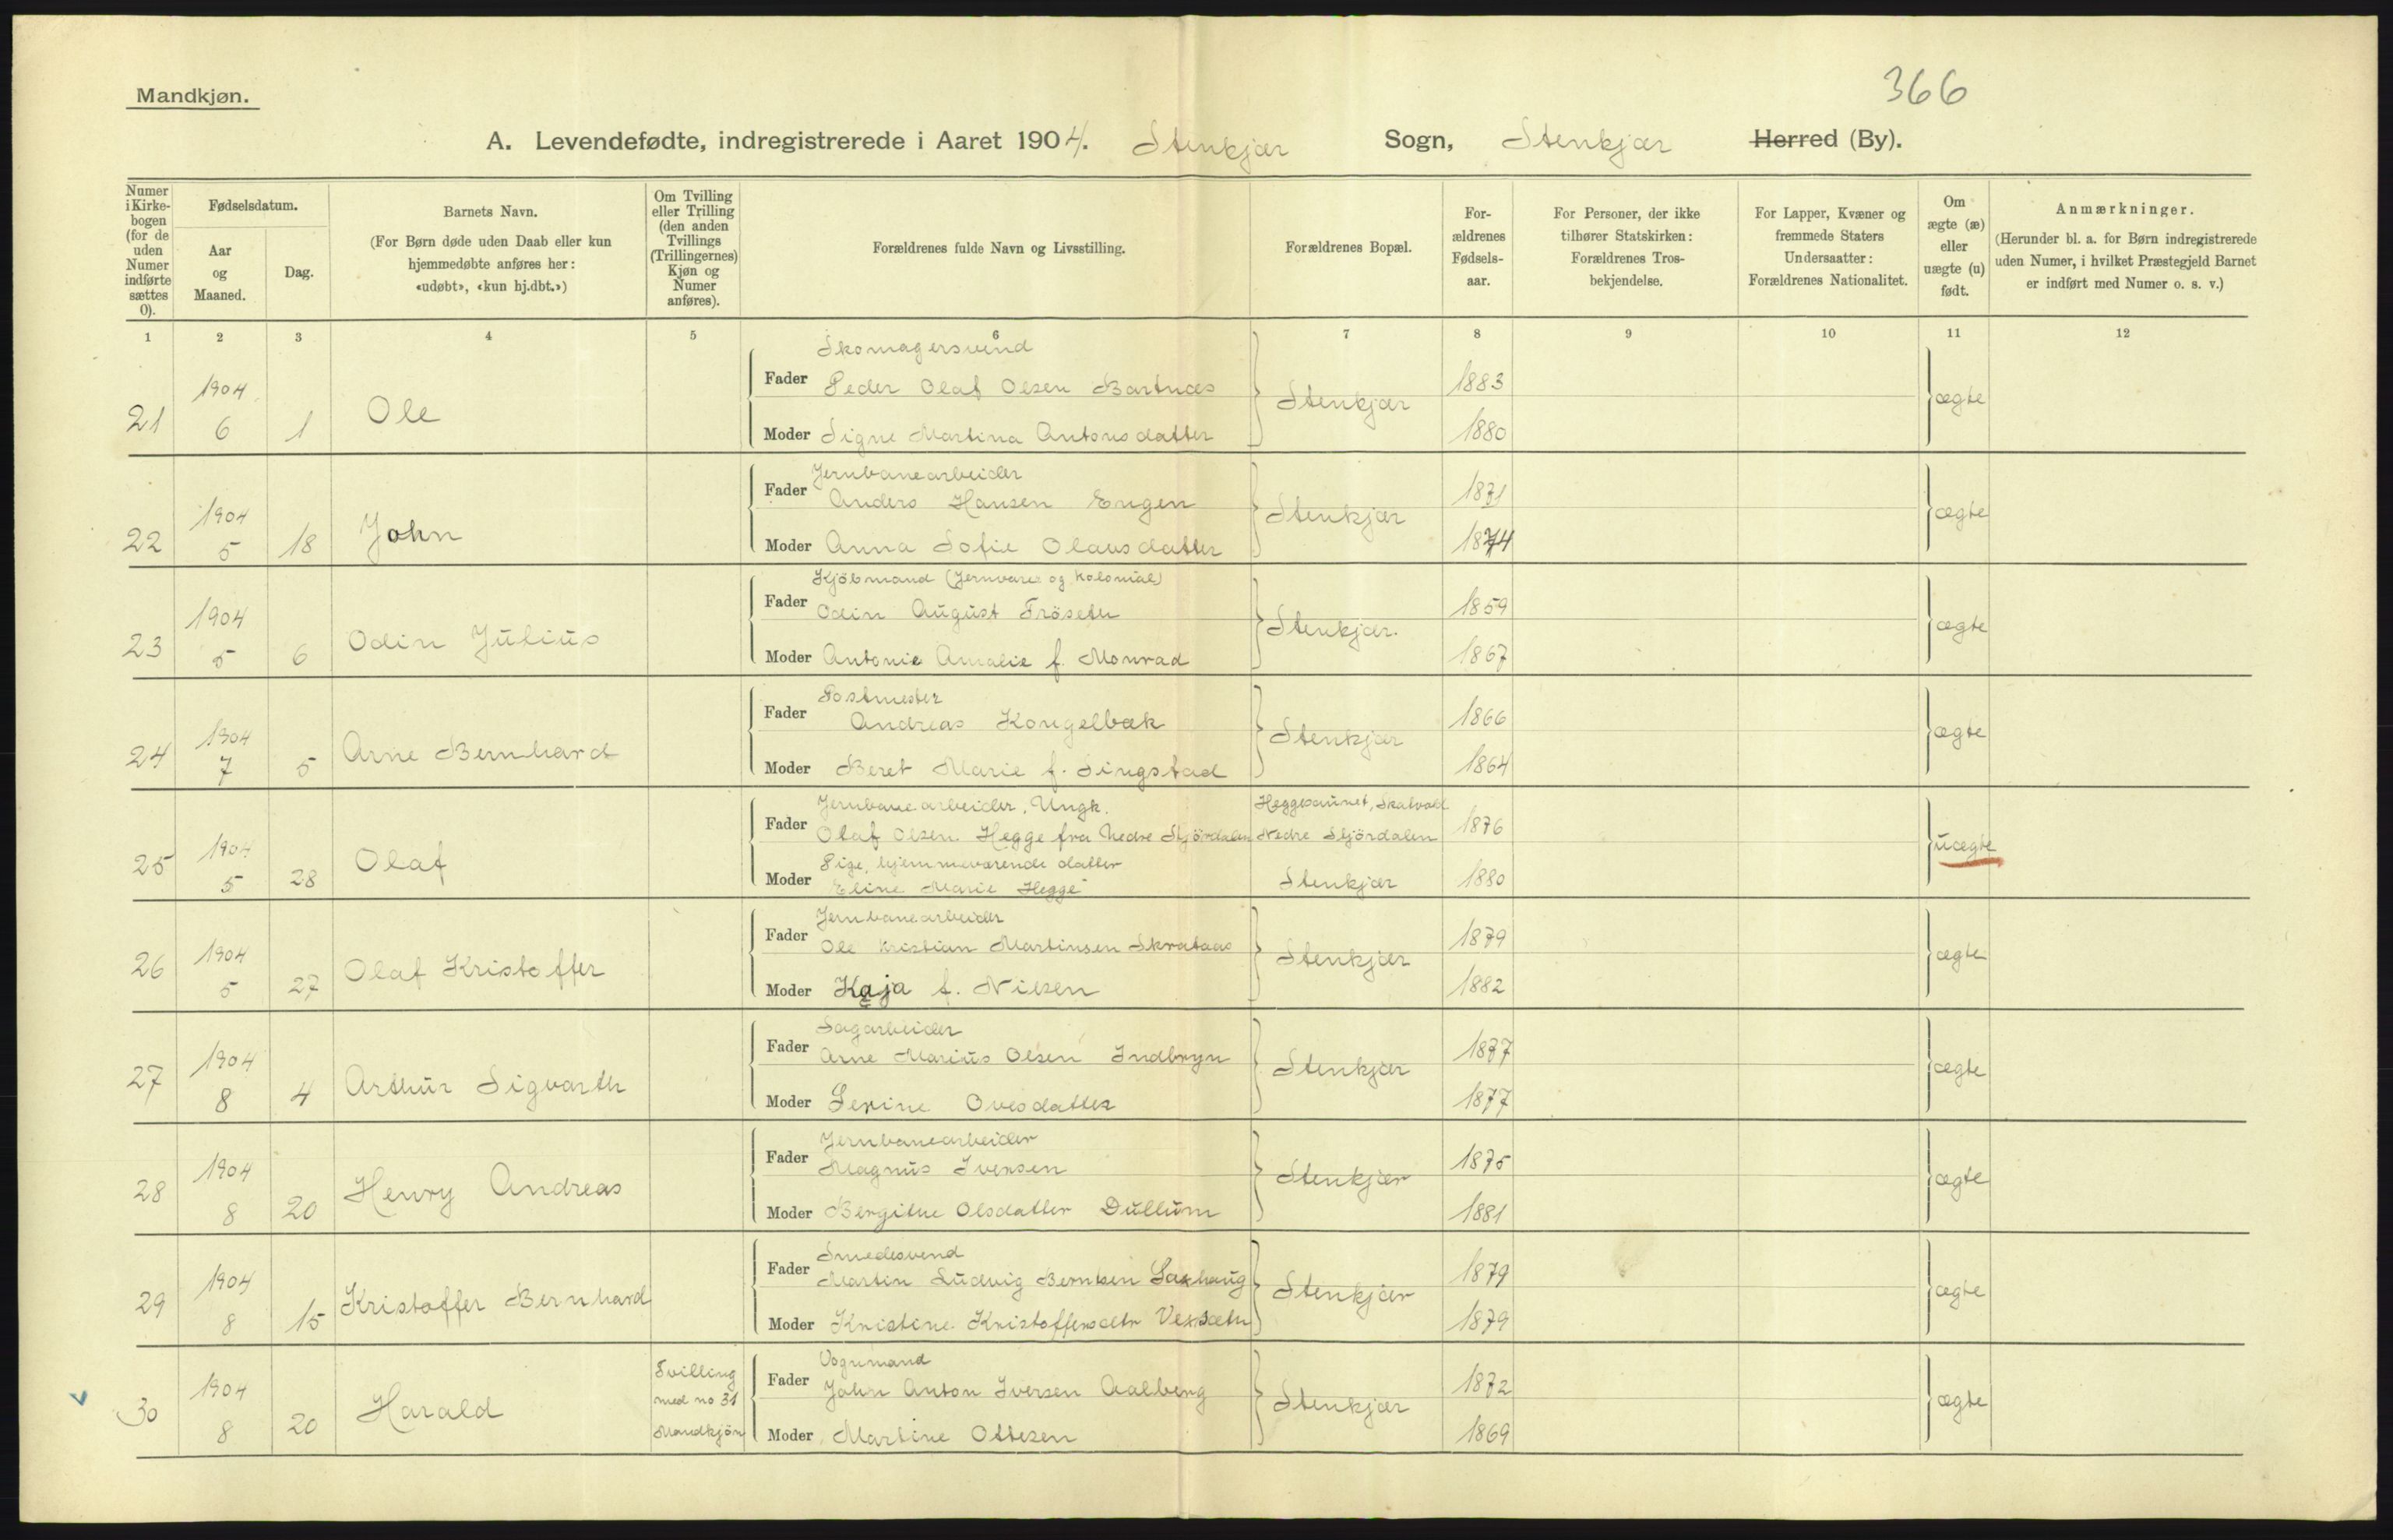 366
Mandkjøn.
A. Levendefødte, indregistrerede i Aaret 1904. Stenkjær Sogn, Stenkjær Herred (By).
Numer i Kirke-bogen (for de uden Numer indførte sættes 0).
Fødselsdatum.
Aar og Maaned.
Dag.
Barnets Navn.
(For Børn døde uden Daab eller kun hjemmedøbte anføres her: «udøbt», «kun hj.dbt.»)
Om Tvilling eller Trilling (den anden Tvillings (Trillingernes) Kjøn og Numer anføres).
Forældrenes fulde Navn og Livsstilling.
Forældrenes Bopæl.
For-ældrenes Fødsels-aar.
For Personer, der ikke tilhører Statskirken: Forældrenes Tros-bekjendelse.
For Lapper, Kvæner og fremmede Staters Undersaatter: Forældrenes Nationalitet.
Om ægte (æ) eller uægte (u) født.
Anmærkninger.
(Herunder bl. a. for Børn indregistrerede uden Numer, i hvilket Præstegjeld Barnet er indført med Numer o. s. v.)
1 2 3 4 5 6 7 8 9 10 11 12
Skomagersvend
21 1904 6 1 Ole Fader Peder Olaf Olsen Bartnæs Stenkjær 1883 ægte
Moder Signe Martina Antonsdatter 1880
Jernbanearbeider
22 1904 5 18 John Fader Anders Hansen Engen Stenkjær 1871 ægte
Moder Anna Sofie Olausdatter 1874
Kjöbmand (Jernvare og Kolonial)
23 1904 5 6 Odin Julius Fader Odin August Fröseth Stenkjær. 1859 ægte
Moder Antonie Amalie f. Monrad 1867
Postmester
24 1904 7 5 Arne Bernhard Fader Andreas Kongelbæk Stenkjær 1866 ægte
Moder Beret Marie f. Singstad 1864
Jernbanearbeider, Ungk. Heggesaunet, Skatval
25 1904 5 28 Olaf Fader Olaf Olsen Hegge fra Nedre Stjördalen Nedre Stjördalen 1876 uægte
Pige, hjemmeværende datter
Moder Eline Marie Hegge Stenkjær 1880
Jernbanearbeider
26 1904 5 27 Olaf Kristoffer Fader Ole Kristian Martinsen Skrataas Stenkjær 1879 ægte
Moder Kaja f. Nilsen 1882
Sagarbeider
27 1904 8 4 Arthur Sigvarth Fader Arne Marius Olsen Indbryn Stenkjær 1877 ægte
Moder Serine Ovesdatter 1877
Jernbanearbeider
28 1904 8 20 Henry Andreas Fader Magnus Iversen Stenkjær 1875 ægte
Moder Bergithe Olsdatter Dullum 1881
Smedesvend
29 1904 8 15 Kristoffer Bernhard Fader Martin Ludvig Berntsen Saxhaug Stenkjær 1879 ægte
Moder Kristine Kristoffersdtr Vexsæth 1879
Vognmand
30 1904 8 20 Harald Tvilling med no 31 Mandkjön Fader John Anton Iversen Aalberg Stenkjær 1872 ægte
Moder Martine Ottesen 1869